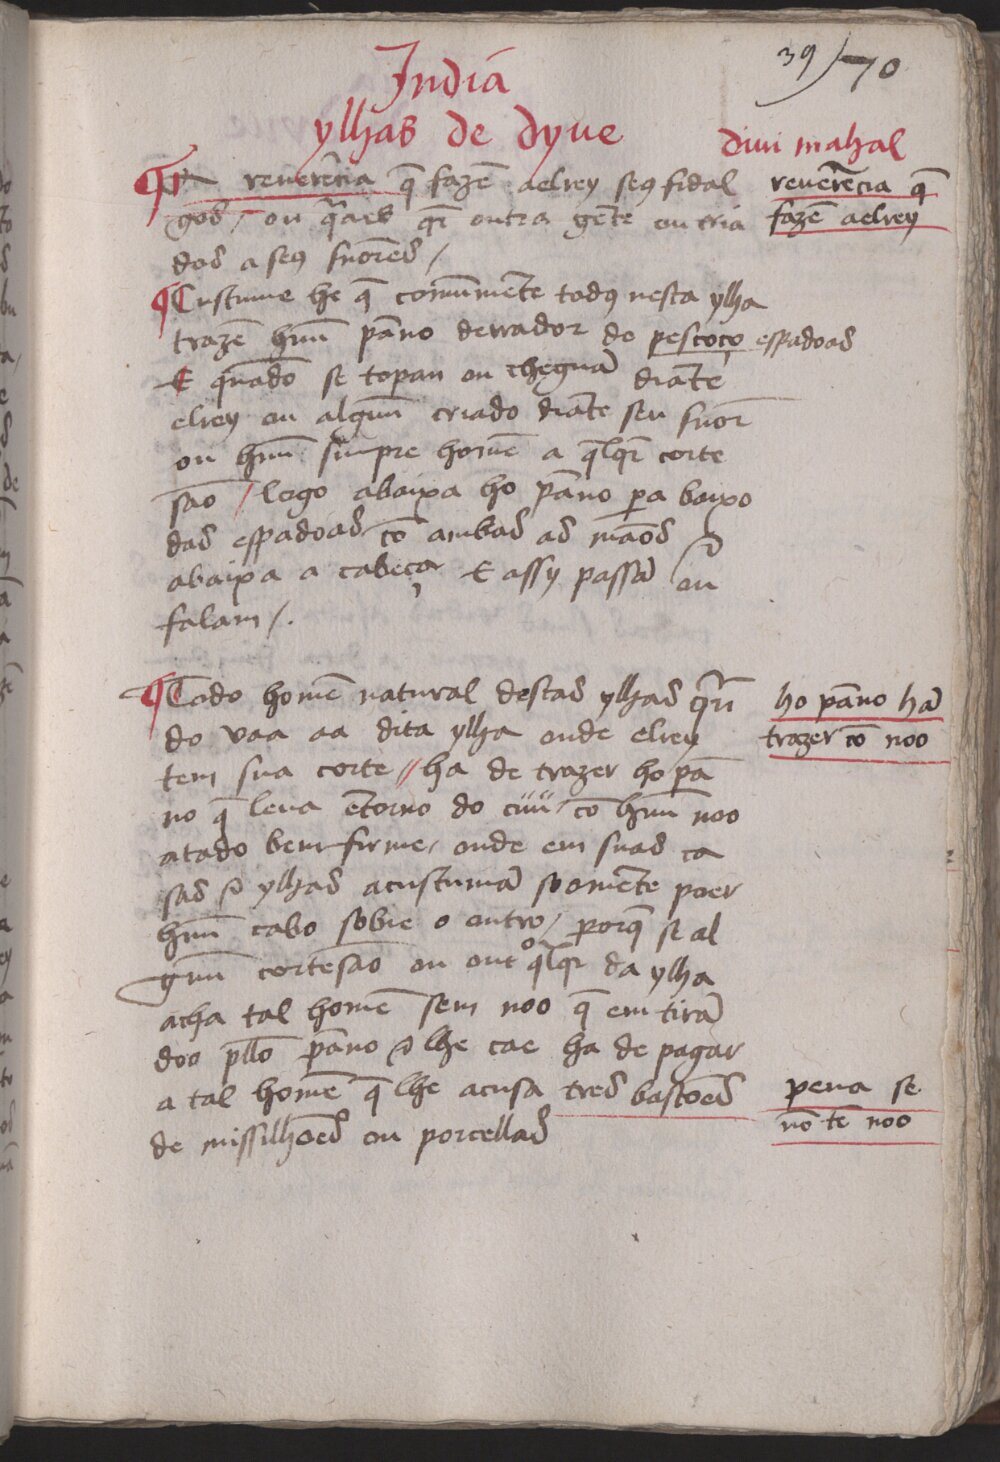 39 / 70
India
ylhas de dyue
diui mahal
¶ A reuerẽcia q̃ fazẽ aelrey seus fidal
gos / ou q̃aes q̃r outra gẽte ou cria
dos a seus sñores /
reuerẽcia q̃
fazẽ aelrey
¶ Custume he q̃ comũmẽte todos nesta ylha
trazẽ hũu pãno derrador do pescoço espadoas
E quãdo se topan ou cheguã diãte
elrey ou algũu criado diãte seu sñor
ou hũu simpre homẽ a q̃lq̃r corte
são / logo abaixa ho pãno pa baixo
das espadoas cõ ambas as mãos &
abaixa a cabeça E assy passã ou
falam /.
¶ Todo homẽ natural destas ylhas quã
do vaa aa dita ylha onde elrey
tem sua corte // ha de trazer ho pã
no q̃ leua ẽtorno do cuu / cõ hũu noo
atado bem firme / onde em suas ca
sas & ylhas acustumã soomẽte poer
hũu cabo sobre o outro / porq̃ se al
gũu cortesão ou outº q̃lq̃r da ylha
acha tal homẽ sem noo q̃ em tirã
doo pllo pãno & lhe cae ha de pagar
a tal homẽ q̃ lhe acusa tres bastões
de missilhões ou porcellas
ho pãno hã
trazer cõ noo
pena se
nõ tẽ noo